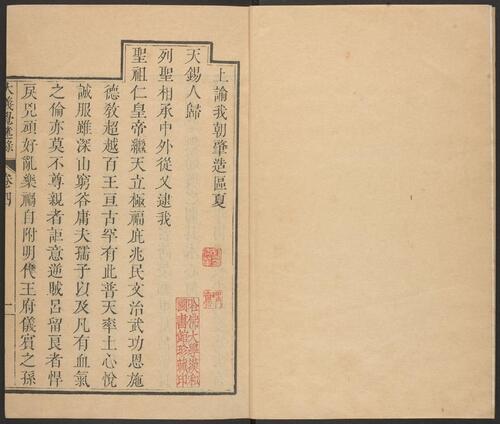 上諭我朝肇造區夏
天錫人歸
列聖相承中外從乂逮我
聖祖仁皇帝繼天立極福庇兆民文治武功恩施
德教超越百王亘古罕有此普天率土心悅
誠服雖深山窮谷庸夫孺子以及凡有血氣
之倫亦莫不尊親者詎意逆賊呂留良者悍
戾兇頑好亂樂禍自附明代王府儀賓之孫
大義覺迷錄 卷四
哈佛大學漢和
圖書館珍藏印